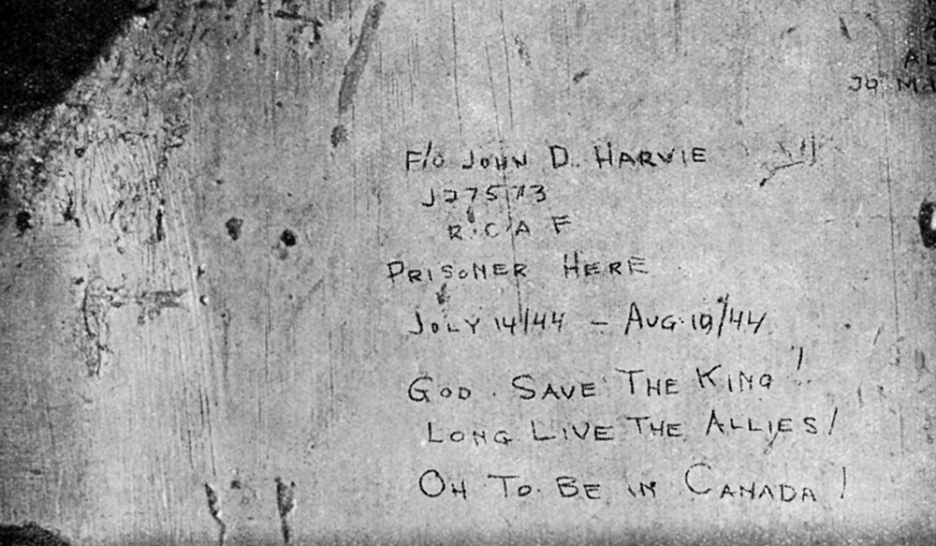 F/O JOHN D. HARVIE
J27573
R.C.A F
PRISONER HERE
JULY 14/44 – AUG. 19/44
GOD. SAVE THE KING!
LONG LIVE THE ALLIES!
OH TO. BE IN CANADA!